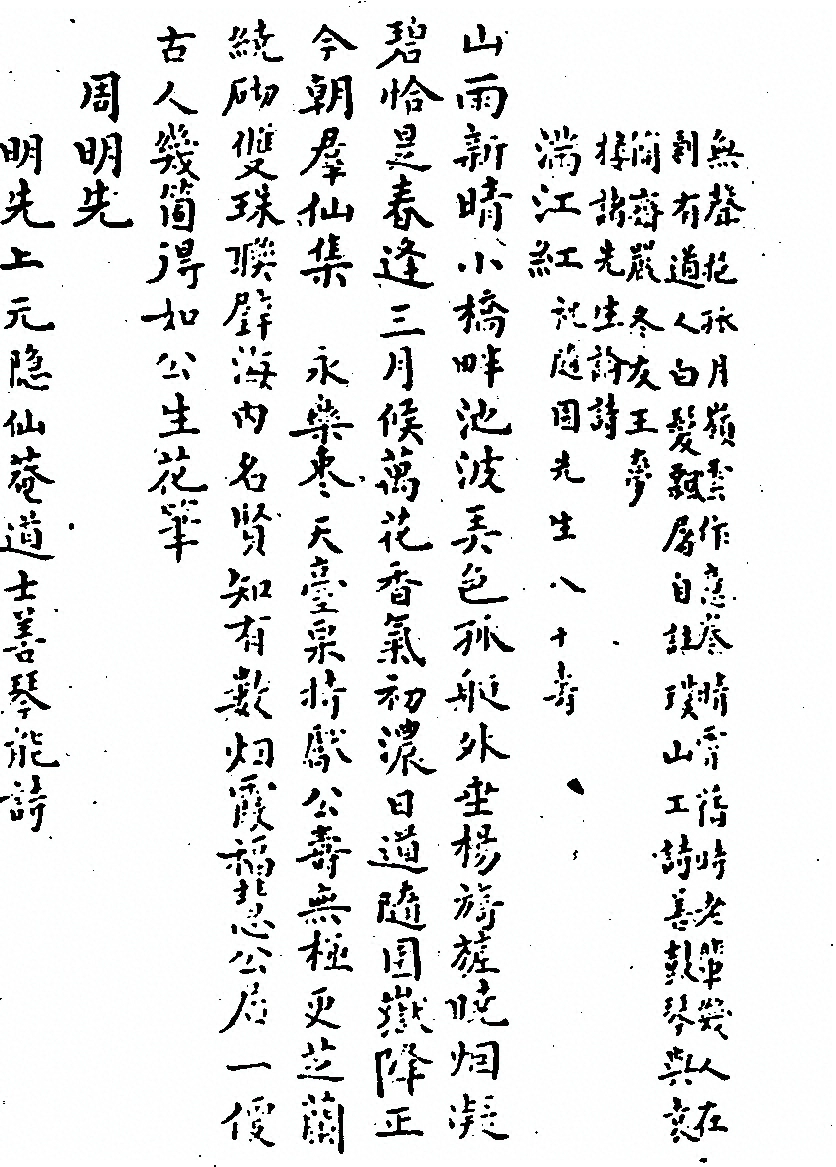 無聲抱孤月嶺雲作意卷晴霄舊時老輩幾人在
剩有道人白髮飄原自註璞山工詩善鼓琴與袁
簡齋嚴冬友王夢
樓諸先生論詩
滿江紅祝庭園先生八十壽
山雨新晴小橋畔池波弄色孤艇外垂楊旖旎曉烟凝
碧恰是春逢三月候萬花香氣初濃日道隨園嶽降正
今朝羣仙集 永樂棗天臺泉持獻公壽無極更芝蘭
繞砌雙珠聯璧海內名賢知有數烟霞福慧公居一便
古人幾箇得如公生花筆
周明先
明先上元隱仙菴道士善琴能詩